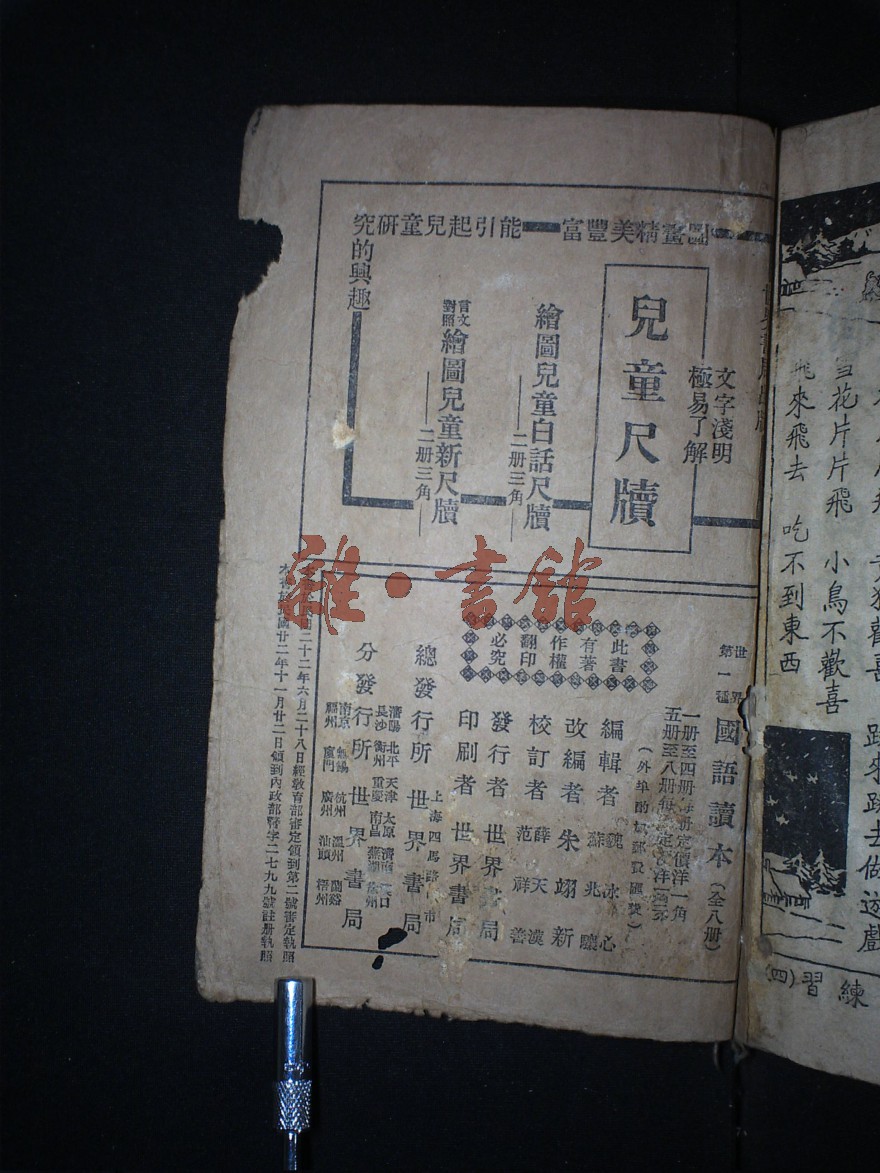 圖畫精美豐富
能引起兒童研究的興趣
文字淺明
極易了解
兒童尺牘
繪圖兒童白話尺牘
二册三角
言文對照
繪圖兒童新尺牘
二册三角
世界第一種
國語讀本(全八册)
一册至四册每册定價洋一角
五册至八册每册定價洋一角
(外埠酌加郵費匯費)
此書有著作權翻印必究
編輯者 魏冰心 蘇兆驤
改編者 朱翊新
校訂者 薛天漢 范祥善
發行者 世界書局
印刷者 世界書局
總發行所 上海四馬路 世界書局
分發行所 世界書局
瀋陽 北平 天津 太原 濟南 漢口
長沙 衡州 重慶 南昌 蕪湖 徐州
南京 無錫 杭州 溫州 蘭谿
福州 廈門 廣州 汕頭 梧州
二十二年六月二十八日經教育部審定領到第二號審定執照
國廿二年十一月廿二日領到內政部警字二七九九號註册執照
雜·書館
雪花片片飛 小鳥不歡喜
飛來飛去 吃不到東西
黃狗歡喜 跳來跳去做遊戲
練習(四)